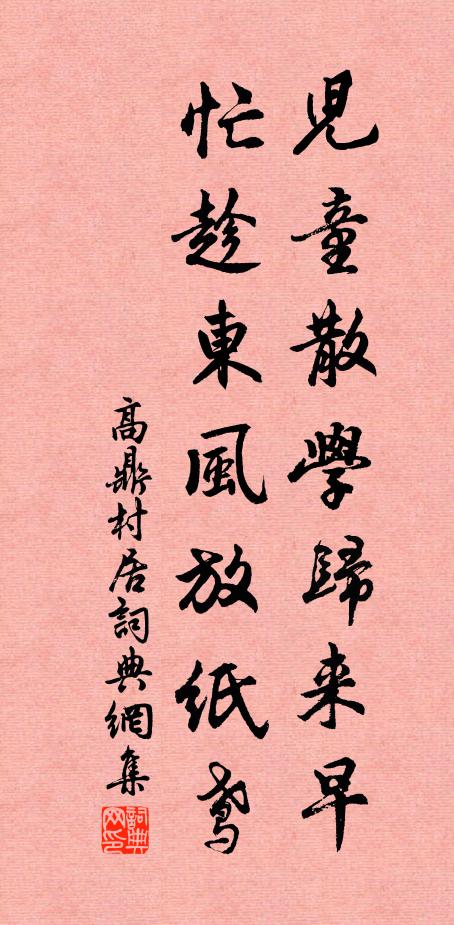 兒童散學歸来早
忙趁東風放紙鳶
高鼎村居詞典網集
詞典網印